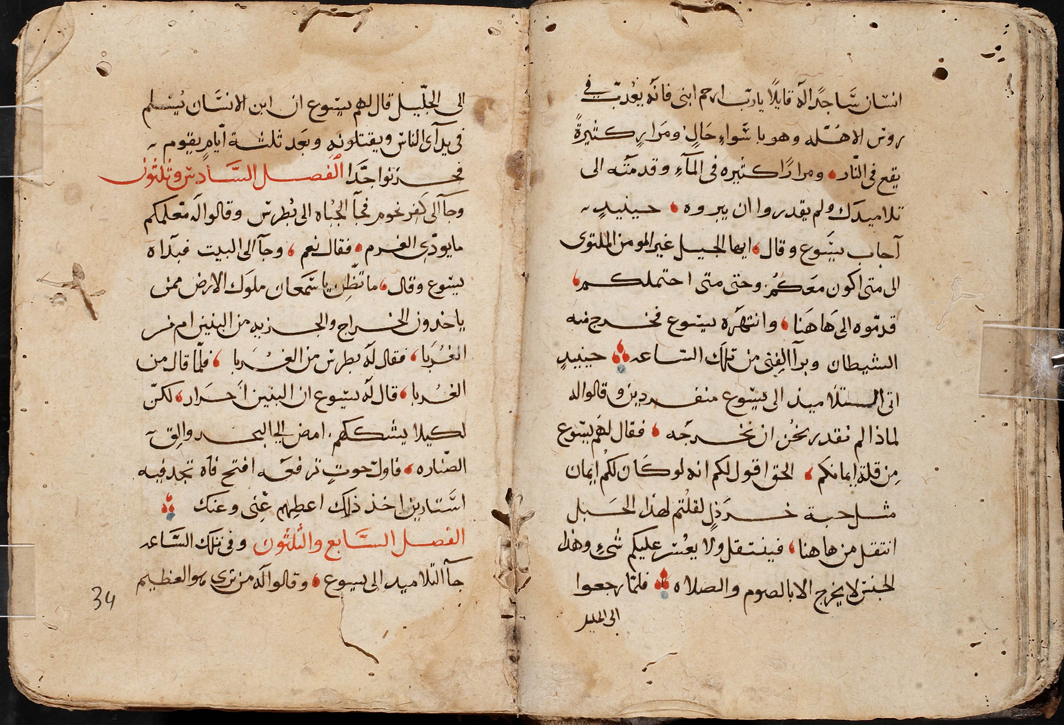 انسان ساجدًا له قايلًا يا رب ارحم ابنى فانّه يعذب فى
روس الاهله وهو باسْواءِ حَالٍ ومَرار كثيرةً
يقع فى النّار ومرارًا كثيره فى المآءِ وقدمته الى
تلاميدك ولم يقدروا ان يبروه حينيدٍ
آجاب يسَوع وقال ايها الجيل غير المومن الملتوى
الى متى اكون معَكمُ وحتى متى احتملكم
قدموه الى هَاهَنا وانتهَره يسوع فخرج منه
الشيطان وبرآ الفتى من تلك السّاعه حينيدٍ
اتى التلاميذ الى يسَوع منفردين وقالوا له
لماذا لم نقدر نحُن ان نخرجه فقال لهم يسَوع
مِن قلة ايمانكم الحق اقول لكم انه لو كَان لكم ايمان
مثل حبة خردَلٍ لقلتم لهذا الجَبل
انتقل من هاهنا فينتقل ولا يعسر عليكم شىءٍ وهذا
الجنس لا يخرج الا بالصوم والصلاه فلمّا رجعوا
الى الجليل
الى الجَلّيل قال لهم يسَوع ان ابن الانسَان يُسَلم
فى يدآى الناس ويقتلونه وبعَد ثلثة ايّام يقوم
فحزنوا جدًّا الفصل السَّادس وثلثون
وجآ الى كفرنحوم فجآ الجُباه الى بُطرس وقالوا له معَلمكم
ما يودّى الغرم فقال نعم وجآ الى البيت فبدَاه
يسَوع وقال ما تظن يا سَمعَان ملوك الارض ممن
ياخدون الخراج والجزيه من البنين ام من
الغُربا فقال له بطرس من الغربا فلمّا قال من
الغربا قال له يسَوع ان البنين احرار لكنّ
لكيلا يشككهم امض الى البحر والق
الصّناره فاول حوتٍ ترفعَه افتح فاه تجد فيه
استاديرا خذ ذلك اعطِهم عَنّى وعنك
الفصل السَّابع والثلثون وفى تلك السَّاعه
جآ التلاميد الى يسَوع وقالوا له من ترى هو العظيم
34